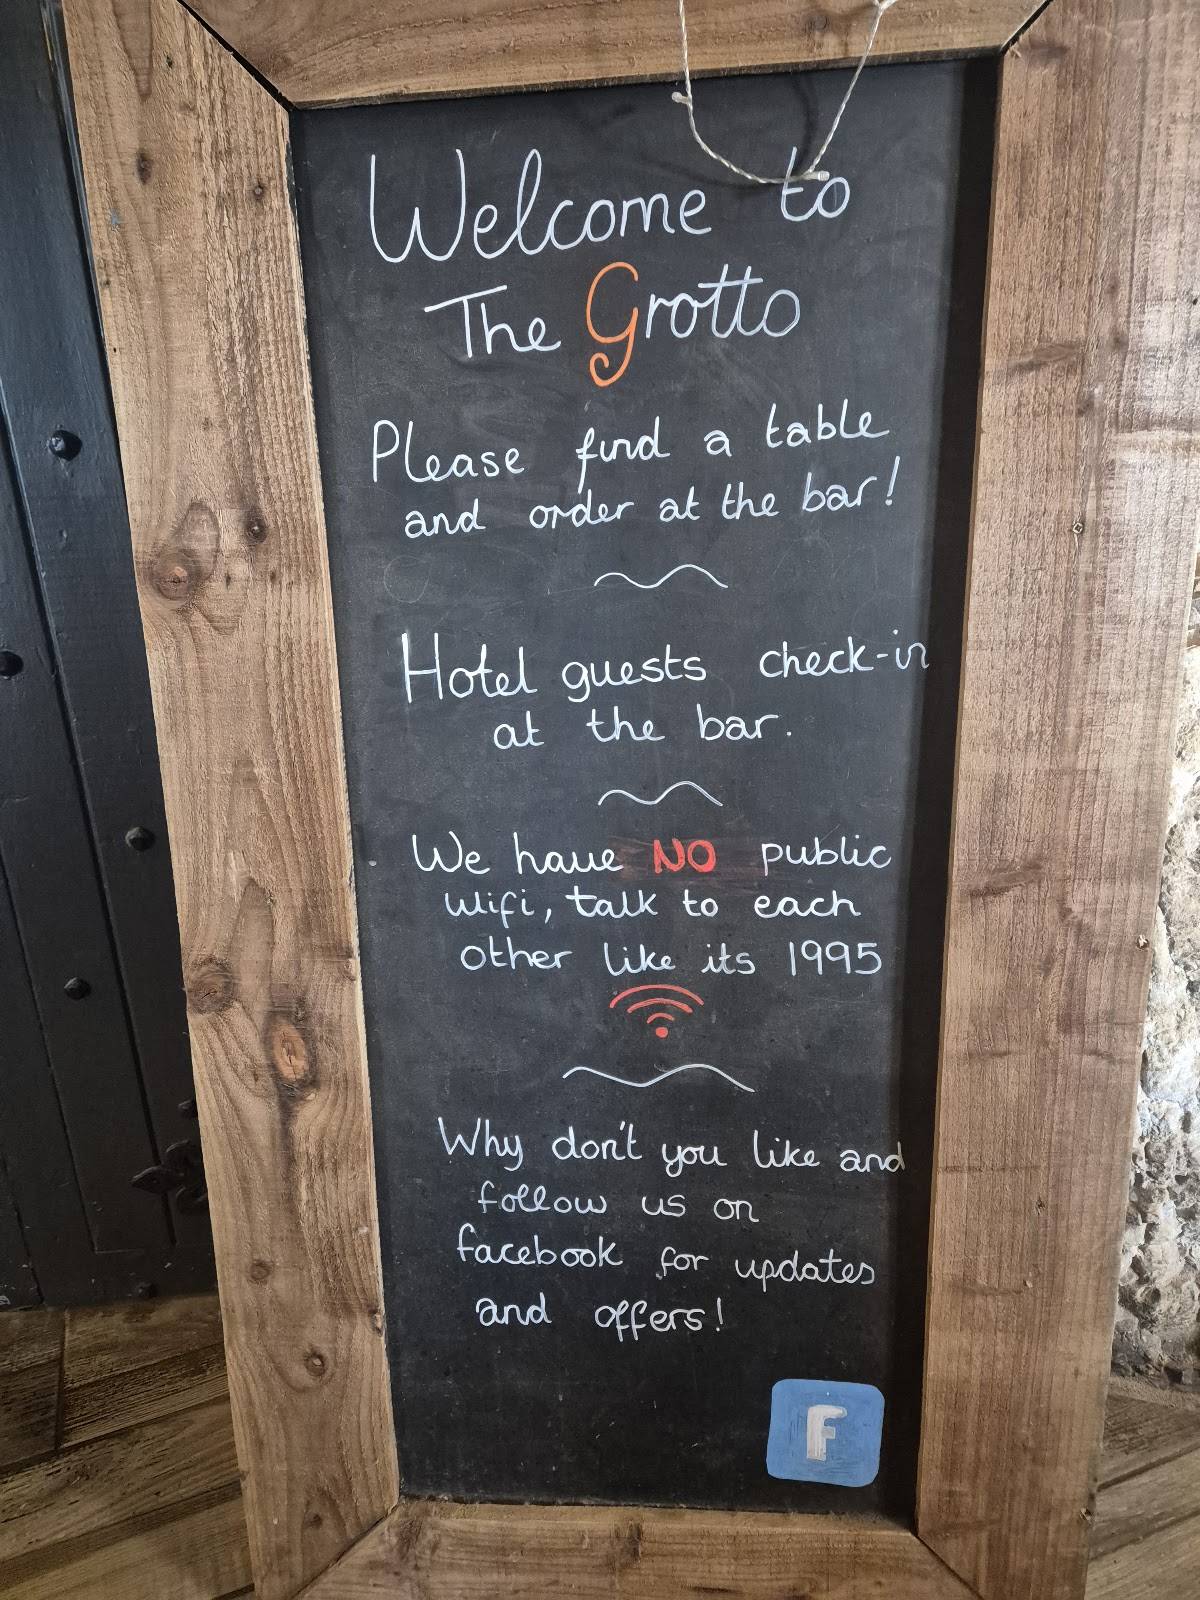 Welcome to
The Grotto
Please find a table
and order at the bar!
Hotel guests check-in
at the bar.
We have NO public
wifi, talk to each
other like its 1995
Why don't you like and
follow us on
facebook for updates
and offers!
F